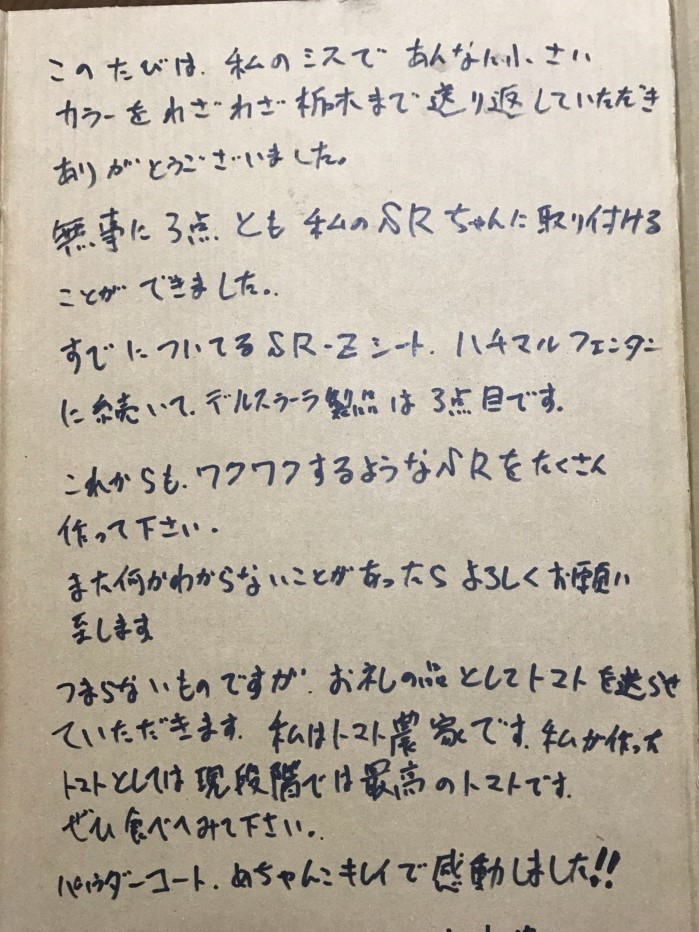 このたびは、私のミスで あんなに小さい
カラーをわざわざ栃木まで送り返していただき
ありがとうございました。
無事に3点とも私のSRちゃんに取り付ける
ことができました。
すでについてるSR-Zシート、ハチマルフェンダー
に続いて、デルスラーラ製品は3点目です。
これからも、ワクワクするようなSRをたくさん
作って下さい。
また何かわからないことがあったらよろしくお願い
至します
つまらないものですが、お礼の品としてトマトを送らせ
ていただきます。私はトマト農家です。私が作った
トマトとしては現段階では最高のトマトです。
ぜひ食べてみて下さい。
パウダーコート、めちゃんこキレイで感動しました!!